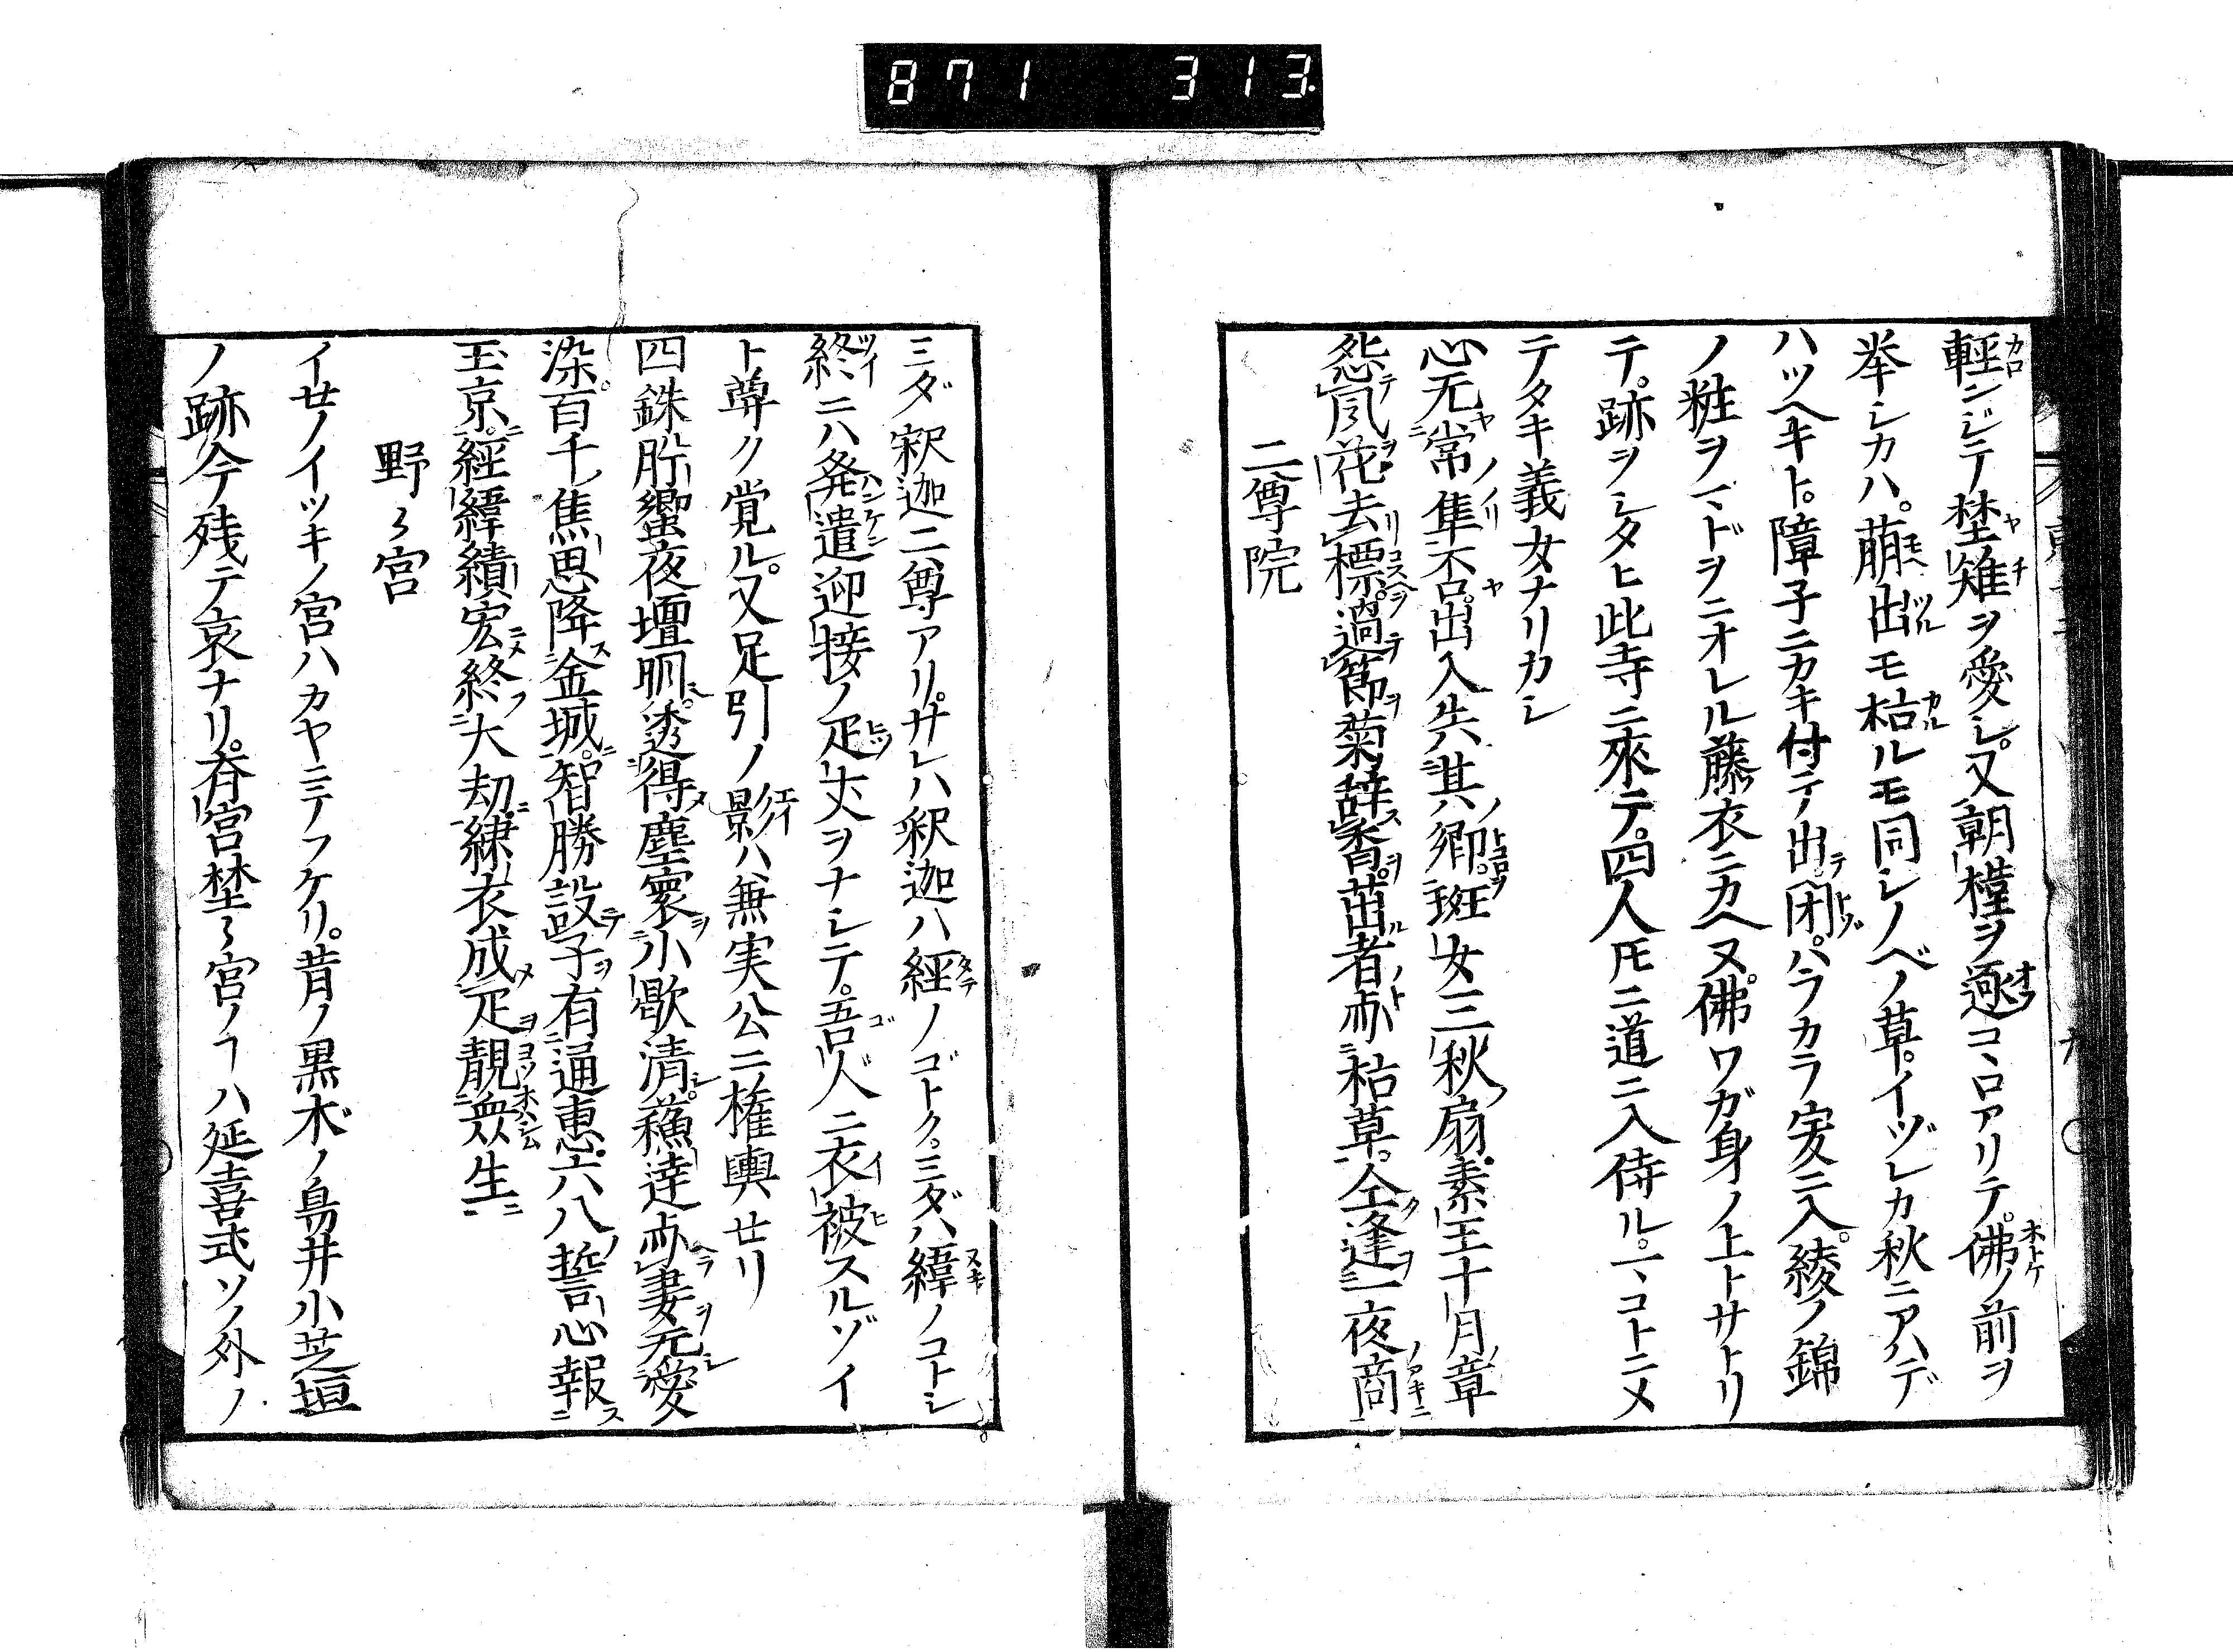 871 313
軽ンジテ埜雉ヲ愛シ。又朝槿ヲ逐コヽロアリテ。佛ノ前ヲ
挙シカハ。萠出モ枯ルモ同シノベノ草。イヅレカ秋ニアハデ
ハツヘキト。障子ニカキ付テ出閉。ハラカラ家ニ入。綾ノ錦
ノ粧ヲノマドヲニオレル藤衣ニカヘヌ。佛ワガ身ノ上トサトリ
テ。跡ヲシタヒ此寺ニ來テ。四人トモニ道ニ入侍ル。マコトニメ
テタキ義女ナリカシ
心无常隼否。出入共其郷。班女三秋扇。素王十月章
怨風花去標。過節菊辞香。茁者亦枯草。仝逢一夜商
二尊院
ミダ釈迦二尊アリ。サレハ釈迦ハ経ノゴトク。ミダハ緯ノコトシ
終ニハ発遣迎接ノ疋丈ヲナシテ。吾人ニ衣被スルゾイ
ト尊ク覚ル。又足引ノ影ハ無実公ニ権輿セリ
四銖肸蠁夜壇明。透得塵寰小歇清。蘓達亦妻元愛
染。百千焦思降金城。智勝設子有通恵。六八誓心報
玉京。経緯績宏終大刧。練衣成疋靚衆生
野々宮
イセノイツキノ宮ハカヤニテフケリ。昔ノ黒木ノ鳥井小芝垣
ノ跡今残テ哀ナリ。斉宮埜々宮ノヿハ延喜式ソノ外ノ